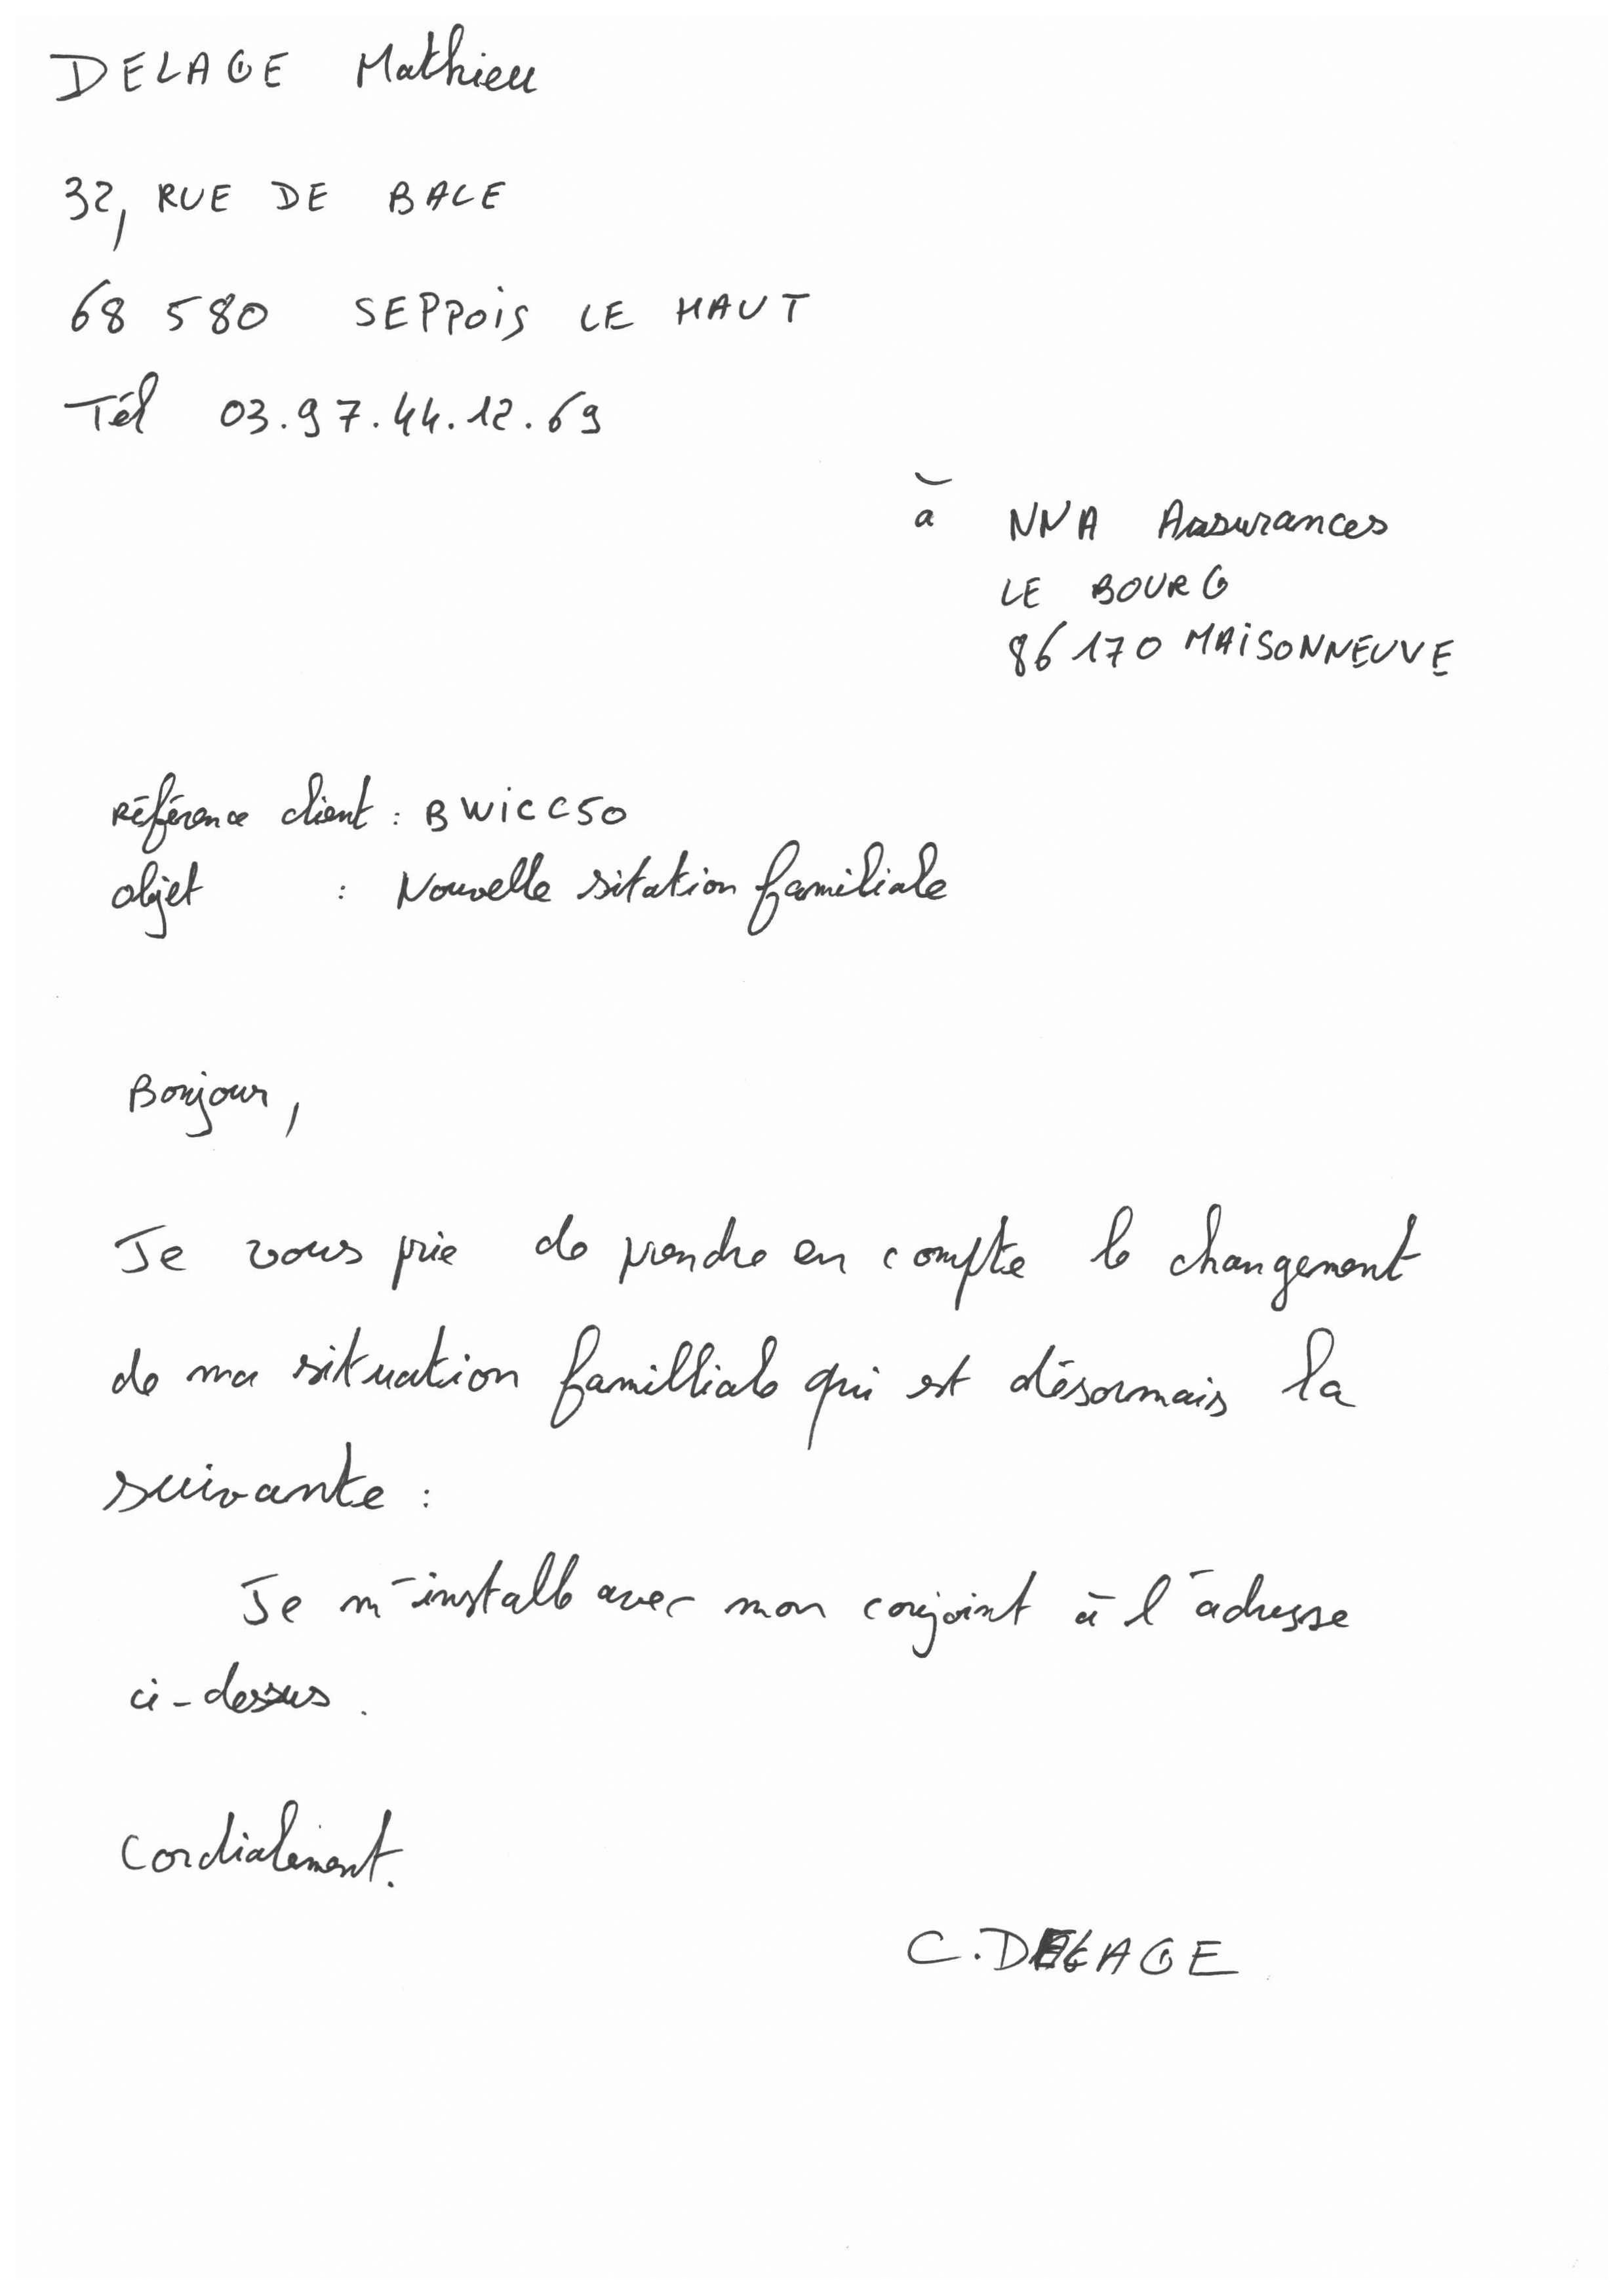 DELAGE Mathieu
32, RUE DE BALE
68 580 SEPPOIS LE HAUT
Tél 03.97.44.12.69
à NNA Assurances
LE BOURG
86 170 MAISONNEUVE
Référence client : BWICC50
objet : Nouvelle sitation familiale
Bonjour,
Je vous prie de prendre en compte le changement
de ma situation familliale qui est désormais la
suivante :
Je m'installe avec mon conjoint à l'adresse
ci-dessus.
Cordialement.
C. DELAGE